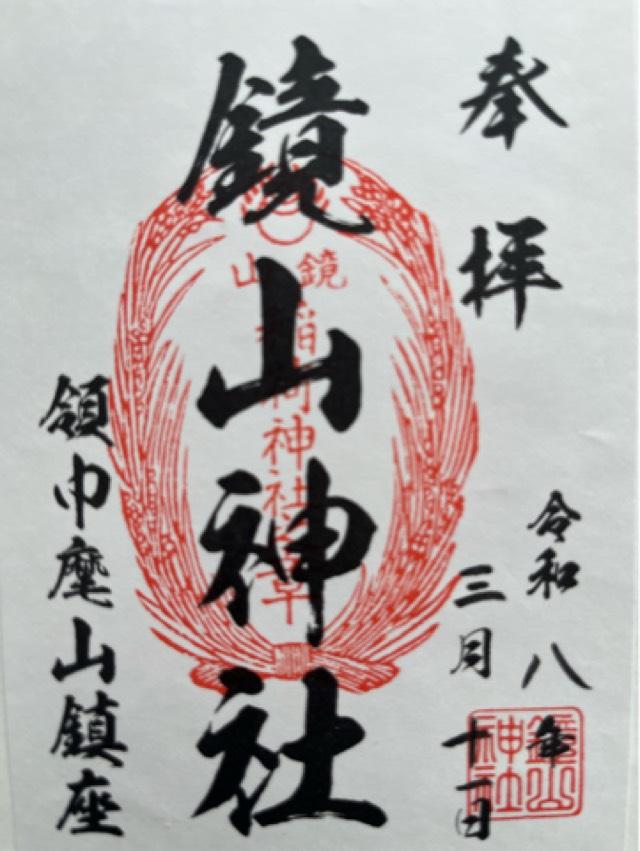 奉拝
令和八年
三月十一日
鏡山神社
鏡山神社
鏡山
稲荷神社
領巾麾山鎮座